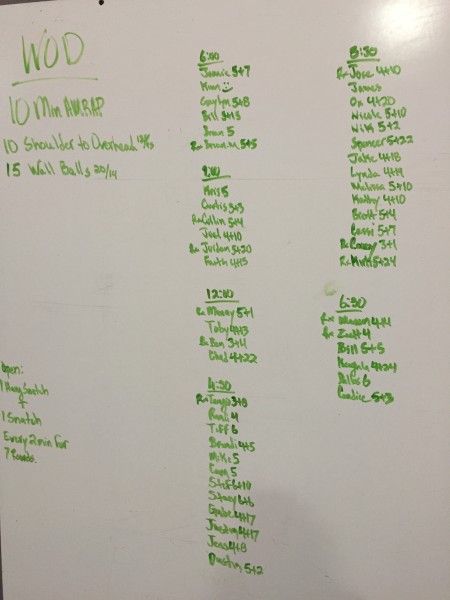 WOD
10 Min AMRAP
10 Shoulder to Overhead
15 Wall Balls 20/14
Open:
1 Hang Snatch
+
1 Snatch
Every 2 min for
7 Rounds.
6:00
Jeannie 5+7
5+8
Bill 3+13
Brian 5
Rx Brian M. 5+5
9:00
Kris 5
Curtis 3+3
Rx Collin 5+14
Joel 4+10
Rx Jordan 5+20
Faith 4+15
12:00
Rx Manny 5+1
Toby 4+13
Rx Ben 3+14
Chad 4+22
4:30
Rx Tanya 3+8
Randi 4
Tiff 6
Brandi 4+5
Mike 5
Cam 5
Stef 6+10
Stacy 6+6
Gabe 4+17
Justin 4+17
Jens 4+8
Dustin 5+2
5:30
Rx Jose 4+10
James
Ox 4+20
Nicole 5+10
Niki 5+2
Spencer 5+22
Jake 4+18
Lynda 4+19
Melissa 5+10
Kathy 4+10
Brott 5+4
Cassi 5+7
Rx Corey 3+1
Rx Kirk 5+24
6:30
Rx 4+14
Rx Zach 4
Bill 5+5
4+24
6
Candice 5+3